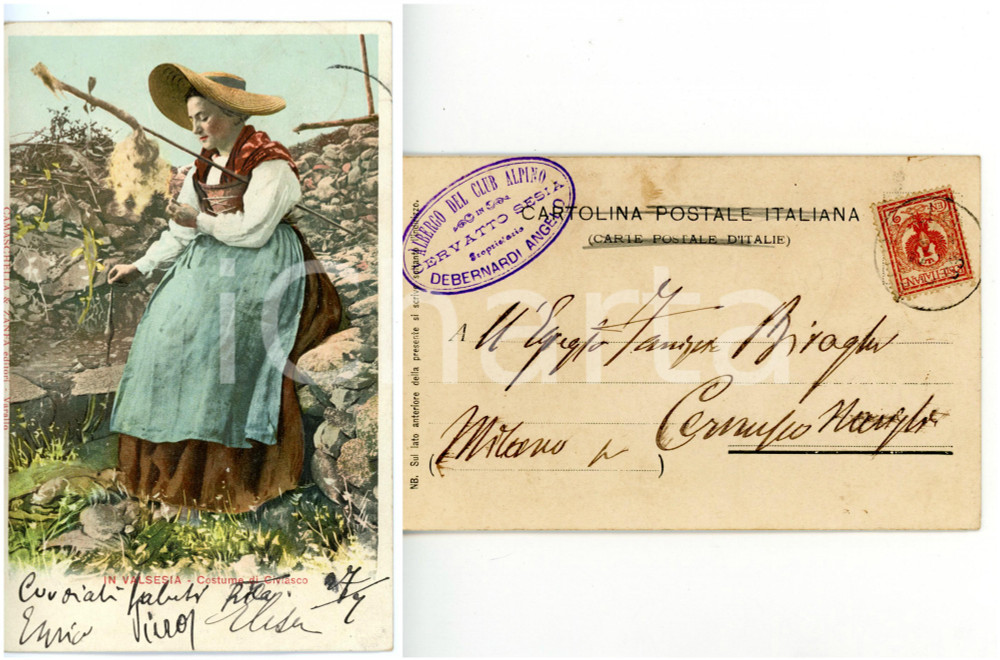 CAMASCHELLA & ZANFA editori Varallo
IN VALSESIA - Costume di Civiasco
Cordiali saluti Rita
Enrico Elisa
iCharta
ALBERGO DEL CLUB ALPINO
IN
CERVATTO SESIA
Proprietario
DEBERNARDI ANGELO
CARTOLINA POSTALE ITALIANA
(CARTE POSTALE D'ITALIE)
NB. Sul lato anteriore della presente si scrive soltanto l'indirizzo.
A All'Egregio Famiglia Biraghi
Milano Cernusco Naviglio